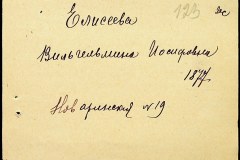 123
Елисеева
Вильгельмина Иосифовна
1877
Наваринская №19